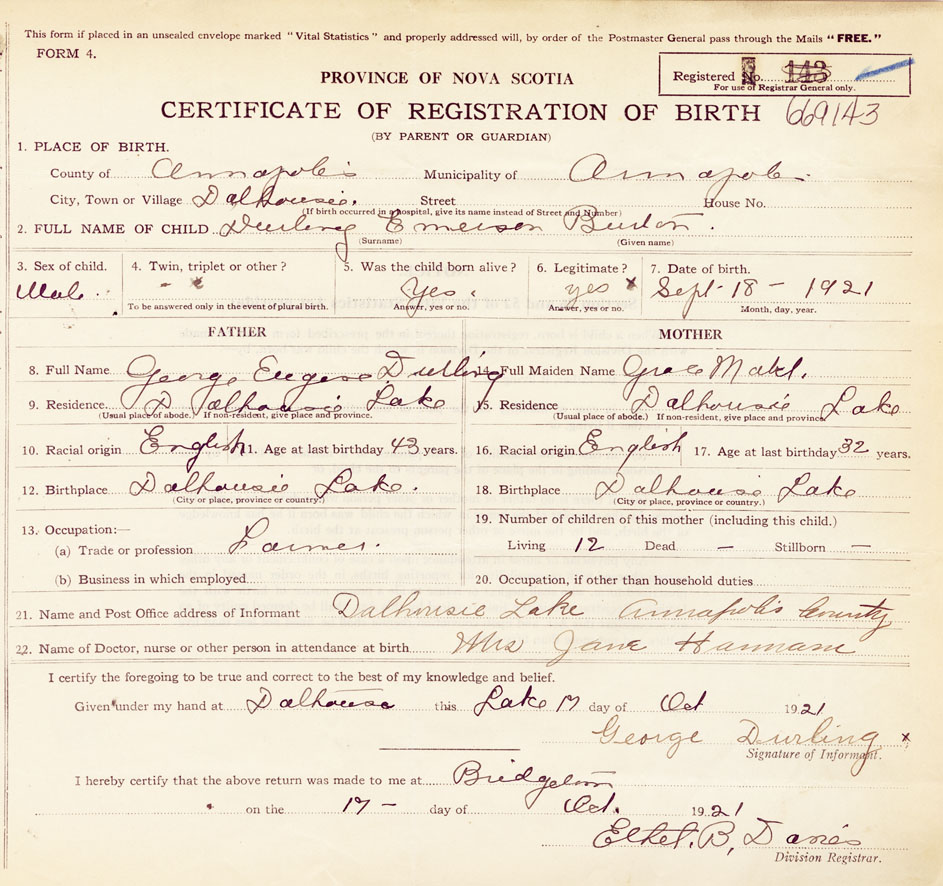 This form if placed in an unsealed envelope marked "Vital Statistics" and properly addressed will, by order of the Postmaster General pass through the Mails "FREE."
FORM 4.
PROVINCE OF NOVA SCOTIA
Registered No. 143
For use of Registrar General only.
CERTIFICATE OF REGISTRATION OF BIRTH 669143
(BY PARENT OR GUARDIAN)
1. PLACE OF BIRTH.
County of Annapolis Municipality of Annapolis
City, Town or Village Dalhousie. Street House No.
(If birth occurred in a hospital, give its name instead of Street and Number)
2. FULL NAME OF CHILD Durling Emerson Burton.
(Surname) (Given name)
3. Sex of child. 4. Twin, triplet or other? 5. Was the child born alive? 6. Legitimate? 7. Date of birth.
Male. - Yes. yes x Sept 18 - 1921
To be answered only in the event of plural birth. Answer, yes or no. Answer, yes or no. Month, day, year.
FATHER MOTHER
8. Full Name George Eugene Durling 14. Full Maiden Name Grace Mabl.
9. Residence Dalhousie Lake 15. Residence Dalhousie Lake
(Usual place of abode.) If non-resident, give place and province. (Usual place of abode.) If non-resident, give place and province
10. Racial origin English 11. Age at last birthday 43 years. 16. Racial origin English 17. Age at last birthday 32 years.
12. Birthplace Dalhousie Lake. 18. Birthplace Dalhousie Lake
(City or place, province or country.) (City or place, province or country.)
13. Occupation:— 19. Number of children of this mother (including this child.)
(a) Trade or profession Farmer. Living 12 Dead — Stillborn —
(b) Business in which employed 20. Occupation, if other than household duties
21. Name and Post Office address of Informant Dalhousie Lake Annapolis County
22. Name of Doctor, nurse or other person in attendance at birth Mrs Jane Hannam
I certify the foregoing to be true and correct to the best of my knowledge and belief.
Given under my hand at Dalhousie this Lake 17 day of Oct 1921
George Durling x
Signature of Informant.
I hereby certify that the above return was made to me at Bridgetown
on the 17 - day of Oct. 1921
Ethel. B. Davies
Division Registrar.